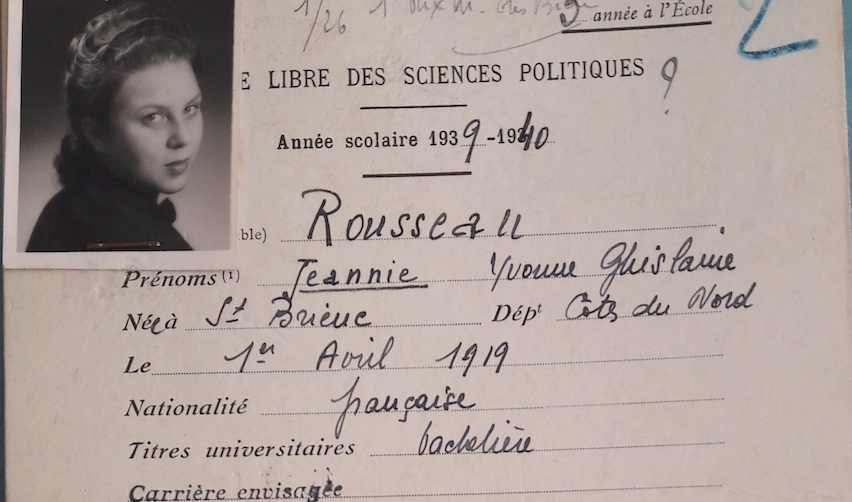 1/26 1
3 année à l'École
2
E LIBRE DES SCIENCES POLITIQUES
Année scolaire 1939-1940
ble) Rousseau
Prénoms (1) Jeannie Yvonne Ghislaine
Née à St Brieuc Dépt Côtes du Nord
Le 1er Avril 1919
Nationalité française
Titres universitaires bachelière
Carrière envisagée